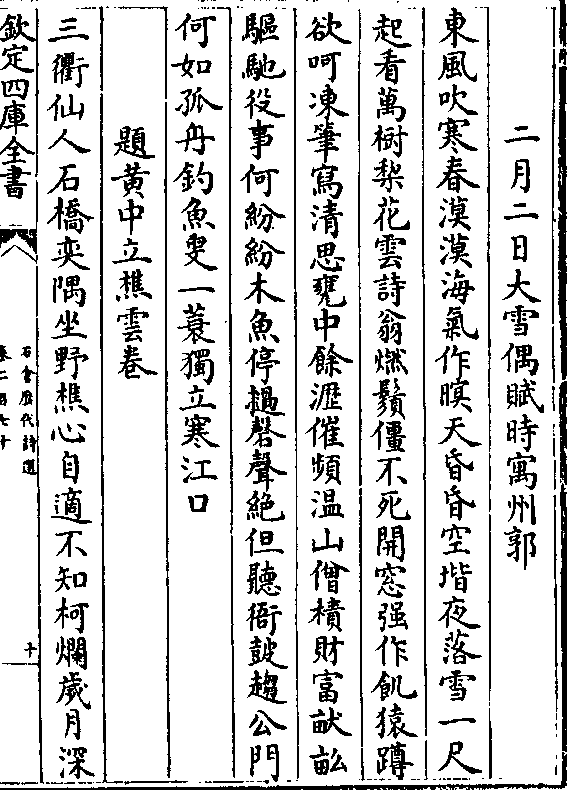 二月二日大雪偶賦時寓州郭
東風吹寒春漠漠海氣作暝天昏昏空堦夜落雪一尺
起看萬樹梨花雲詩翁燃鬚僵不死開窓强作飢猿蹲
欲呵凍筆寫清思甕中餘瀝催頻温山僧積財富畎畝
驅馳役事何紛紛木魚停撾磬聲絶但聽衙鼓趨公門
何如孤舟釣魚叟一蓑獨立寒江口
題黄中立樵雲卷
三衢仙人石橋奕隅坐野樵心自適不知柯爛歲月深
欽定四庫全書
石倉歷代詩選
卷二百七十
十